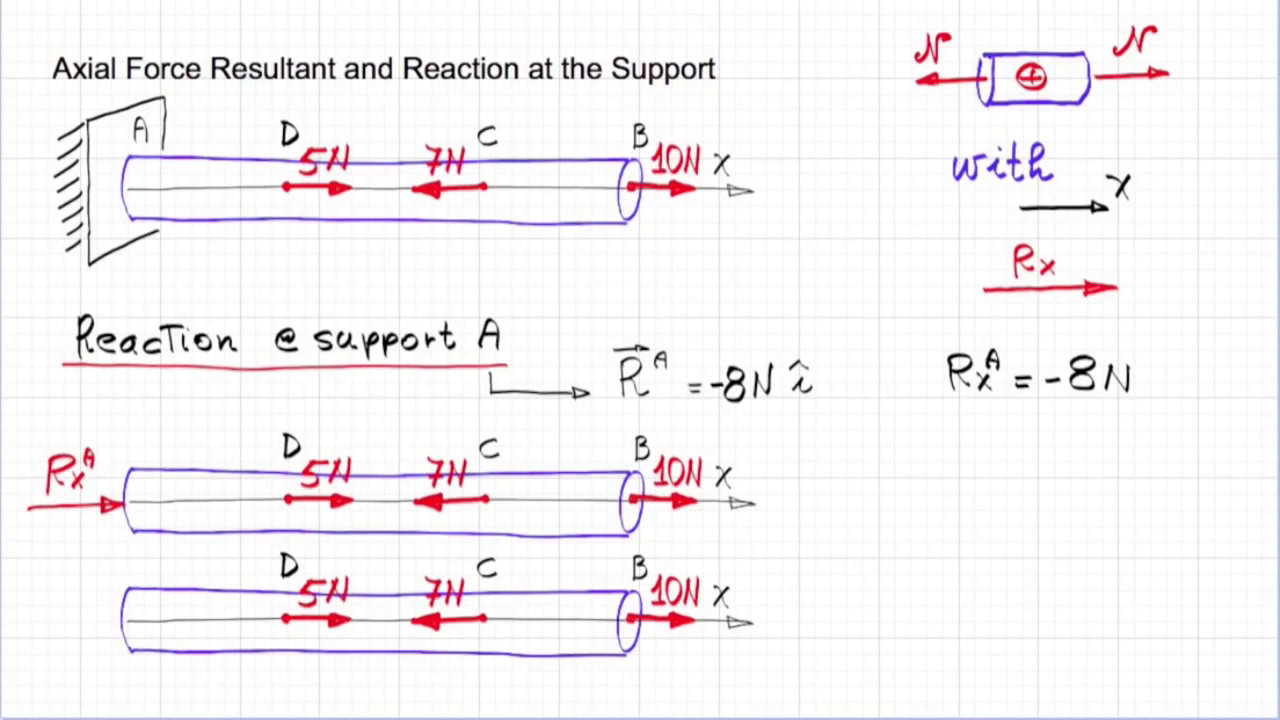 Axial Force Resultant and Reaction at the Support
N N
A D C B
5N 7N 10N x
with
x
Rx
Reaction @ support A
R⃗ᴬ = -8N î
Rxᴬ = -8N
D C B
Rxᴬ 5N 7N 10N x
D C B
5N 7N 10N x